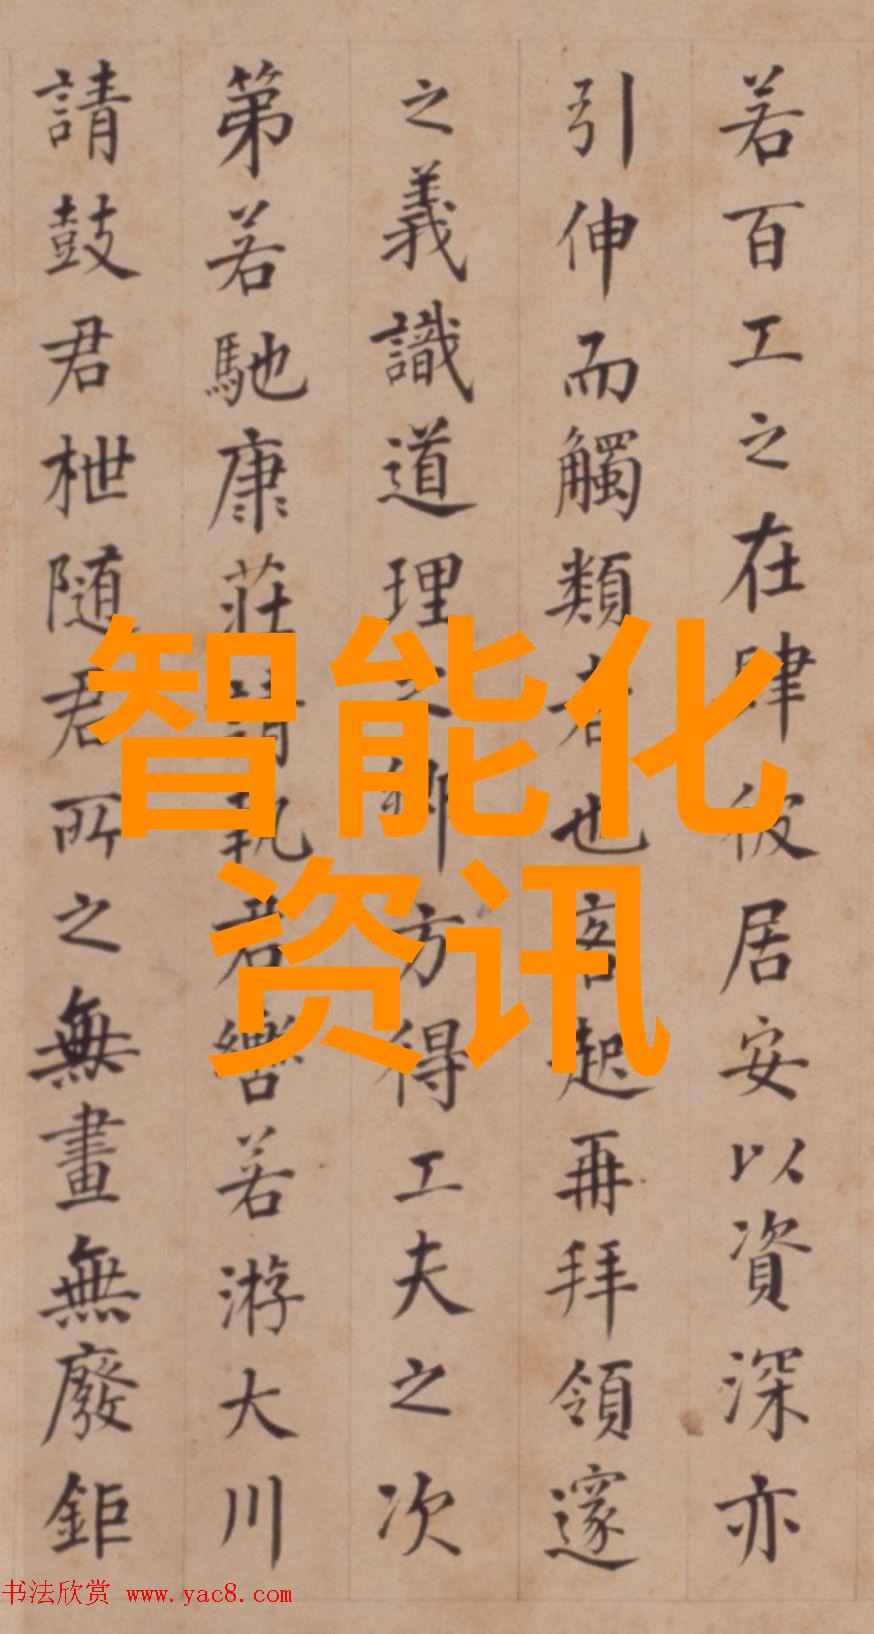 若百工之在肆彼居安以資深亦
引伸而觸類者也客起再拜領邃
之義識道理之鄉方得工夫之次
第若馳康莊請執君轡若游大川
請鼓君枻随君所之無畫無廢鉅
智能化
资讯
书法欣赏 www.yac8.com